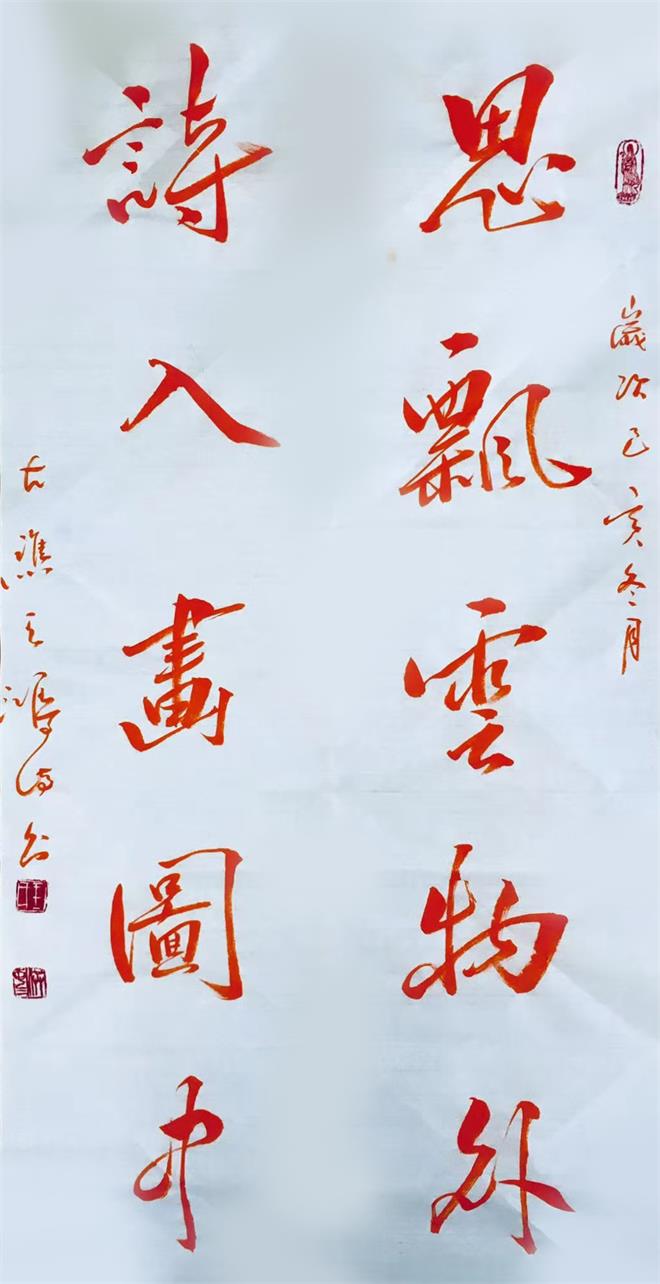 歲次己亥冬月
思飄雲物外
詩入畫圖中
古譙王鴻海書